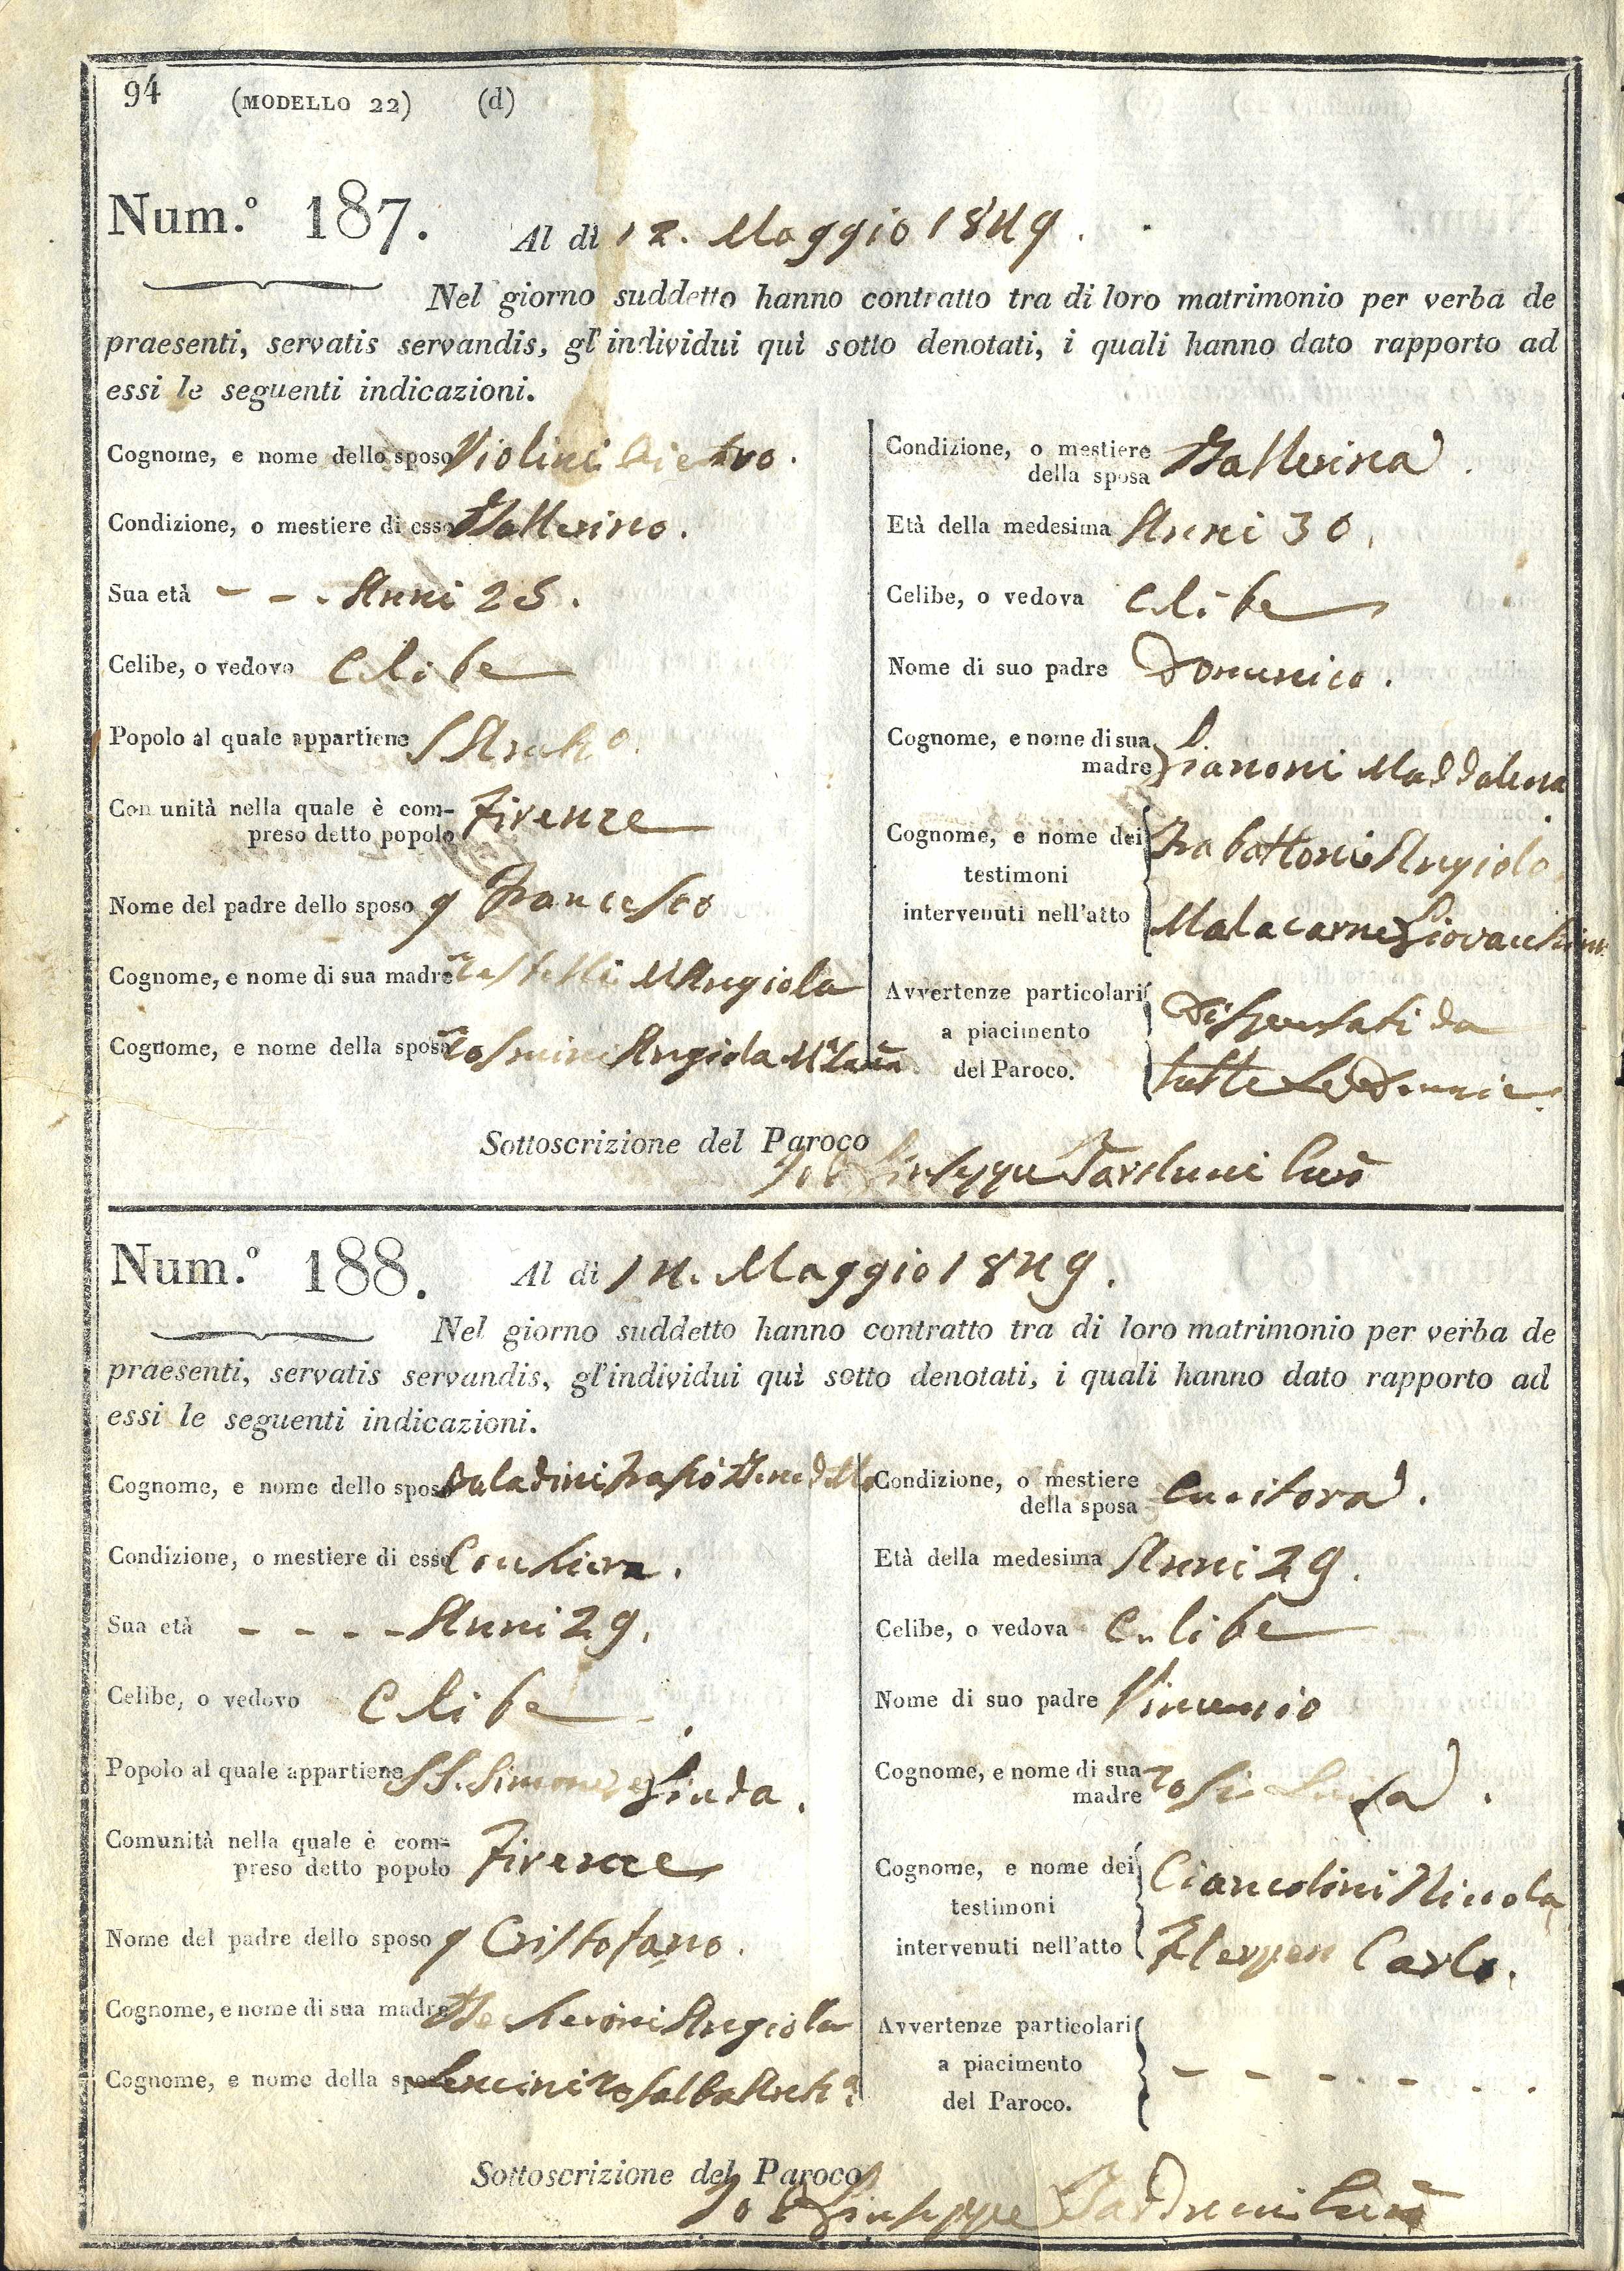 94 (MODELLO 22) (d)
Num.º 187. Al dì 12. Maggio 1849.
Nel giorno suddetto hanno contratto tra di loro matrimonio per verba de
praesenti, servatis servandis, gl'individui quì sotto denotati, i quali hanno dato rapporto ad
essi le seguenti indicazioni.
Cognome, e nome dello sposo Violini Pietro.
Condizione, o mestiere di esso Ballerino.
Sua età - - . Anni 25.
Celibe, o vedovo Celibe
Popolo al quale appartiene
Comunità nella quale è com-
preso detto popolo Firenze
Nome del padre dello sposo q Francesco
Cognome, e nome di sua madre Angiola
Cognome, e nome della sposa Angiola
Condizione, o mestiere
della sposa Ballerina.
Età della medesima Anni 30.
Celibe, o vedova Celibe
Nome di suo padre Domenico.
Cognome, e nome di sua
madre Gianoni Maddalena
Cognome, e nome dei
testimoni
intervenuti nell'atto
Trabattoni Angiolo
Malacarne
Avvertenze particolari
a piacimento
del Paroco.
Dispensati da
tutte le Denunzie.
Sottoscrizione del Paroco
Giuseppe Curº
Num.º 188. Al dì 14. Maggio 1849.
Nel giorno suddetto hanno contratto tra di loro matrimonio per verba de
praesenti, servatis servandis, gl'individui quì sotto denotati, i quali hanno dato rapporto ad
essi le seguenti indicazioni.
Cognome, e nome dello sposo Paladini
Condizione, o mestiere di esso
Sua età - - - - Anni 29.
Celibe, o vedovo Celibe
Popolo al quale appartiene SS. Simone e Giuda.
Comunità nella quale è com-
preso detto popolo Firenze
Nome del padre dello sposo q Cristofano.
Cognome, e nome di sua madre Angiola
Cognome, e nome della sposa Rosalba
Condizione, o mestiere
della sposa Cucitora.
Età della medesima Anni 29.
Celibe, o vedova Celibe
Nome di suo padre Vincenzio
Cognome, e nome di sua
madre Rosi Luisa.
Cognome, e nome dei
testimoni
intervenuti nell'atto
Ciancolini Niccola
Carlo.
Avvertenze particolari
a piacimento
del Paroco.
Sottoscrizione del Paroco
Giuseppe Curº